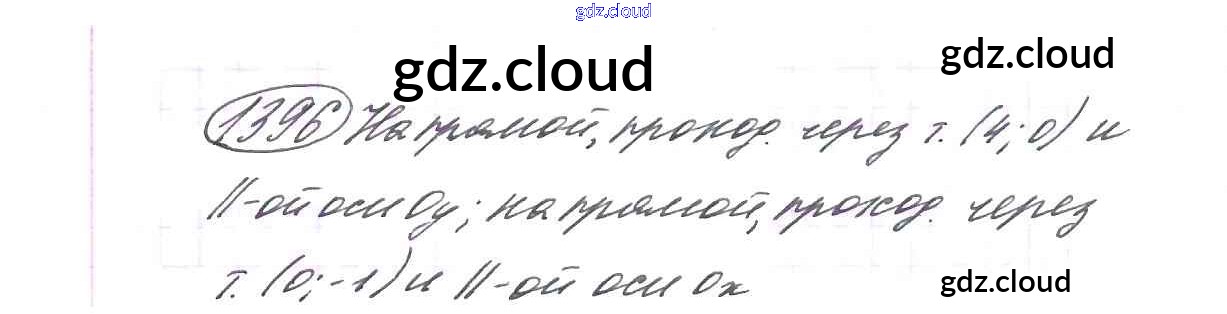 gdz.cloud
gdz.cloud
gdz.cloud
1396 На прямой, проход. через т. (4; 0) и
||-ой оси Oy; на прямой, проход. через
т. (0; -1) и ||-ой оси Ox
gdz.cloud